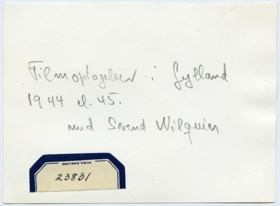 Filmoptagelser i Jylland
1944 el. 45.
med Svend Wilquin
23831